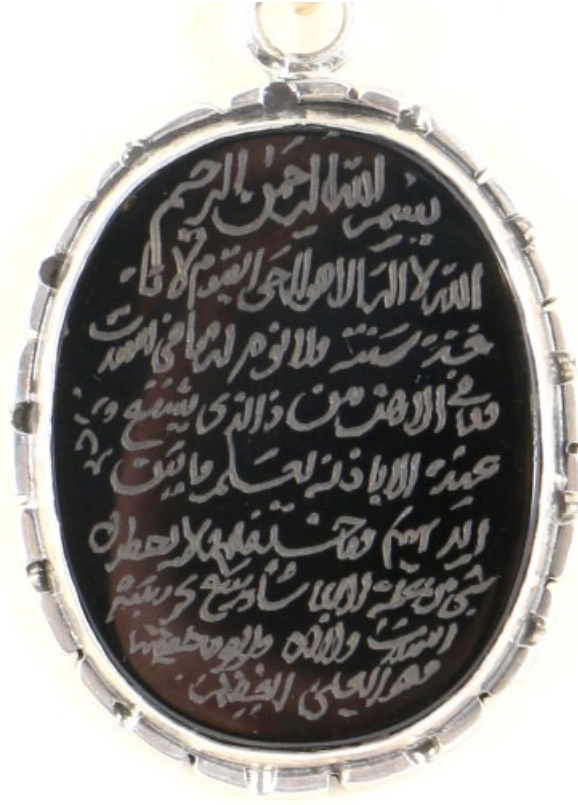 بسم الله الرحمن الرحيم
الله لا اله الا هو الحي القيوم لا تا
خذه سنة ولا نوم له ما في السموت
وما في الارض من ذالذي يشفع
عنده الا باذنه يعلم ما بين
ايديهم وما خلفهم ولا يحيطون
شي من علمه الا بما شاء وسع كرسيه
السموت والارض ولا يوده حفظهما
وهو العلي العظيم